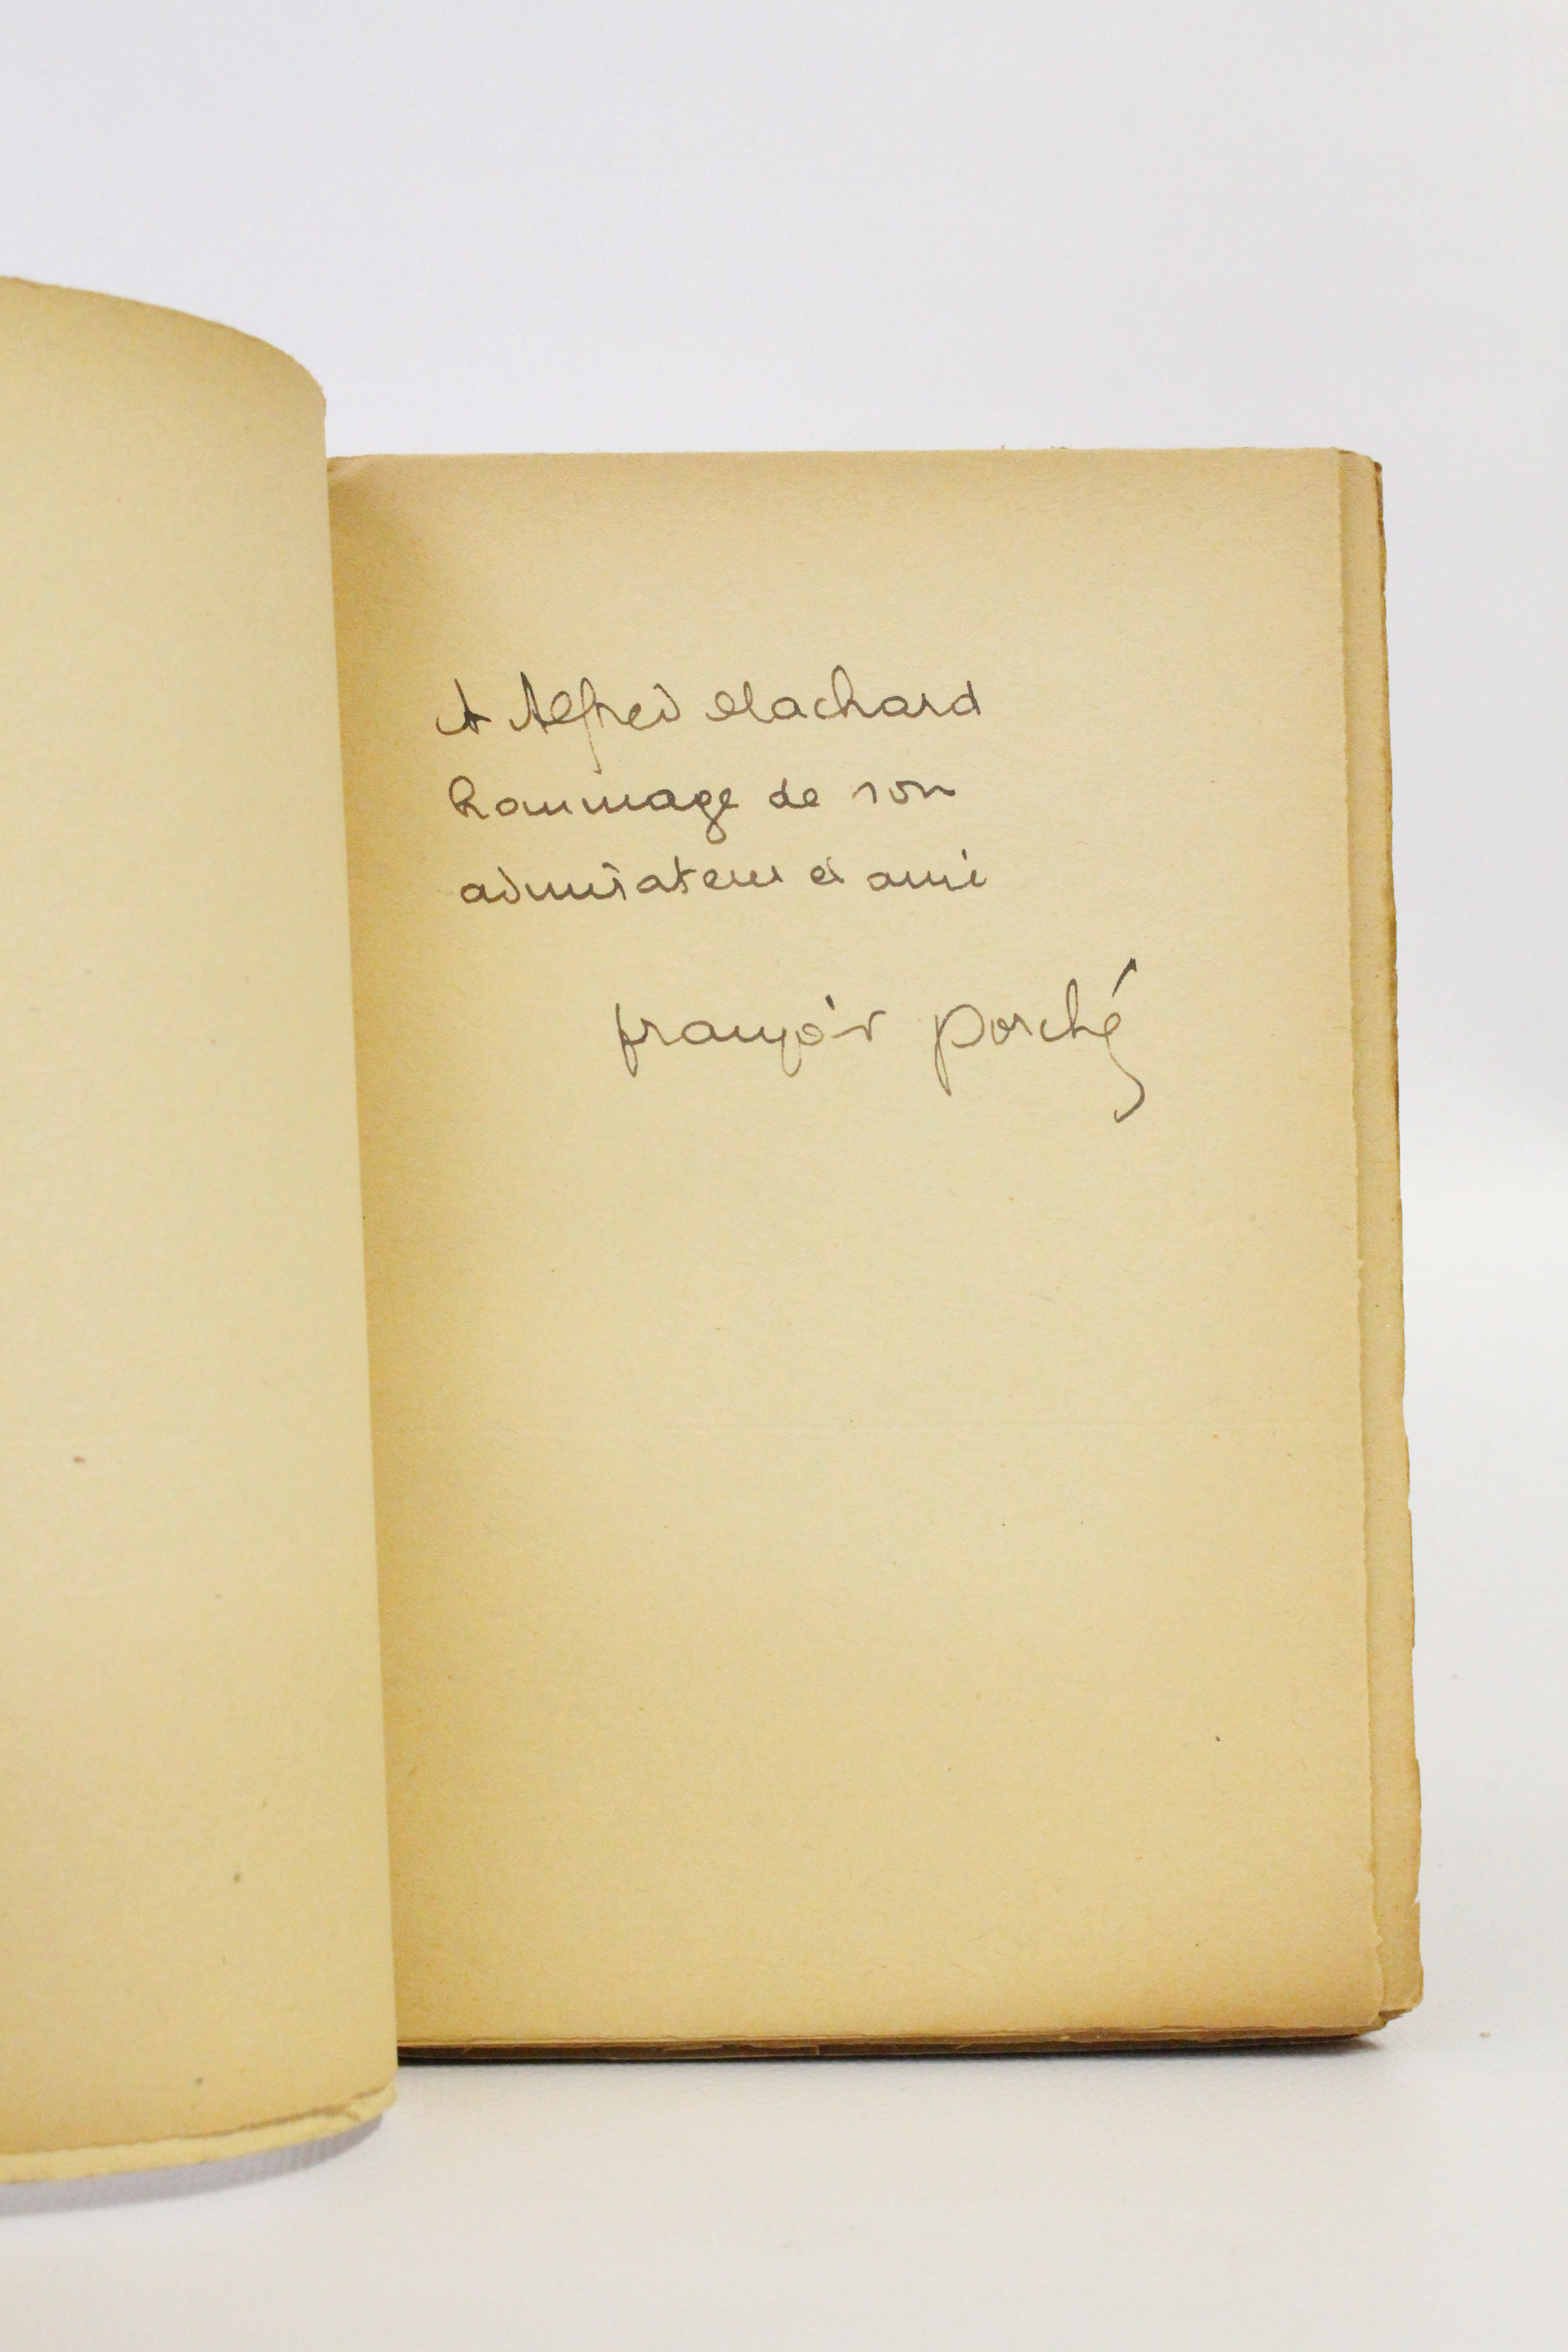 A Alfred Machard
hommage de son
admirateur et ami
françois porché